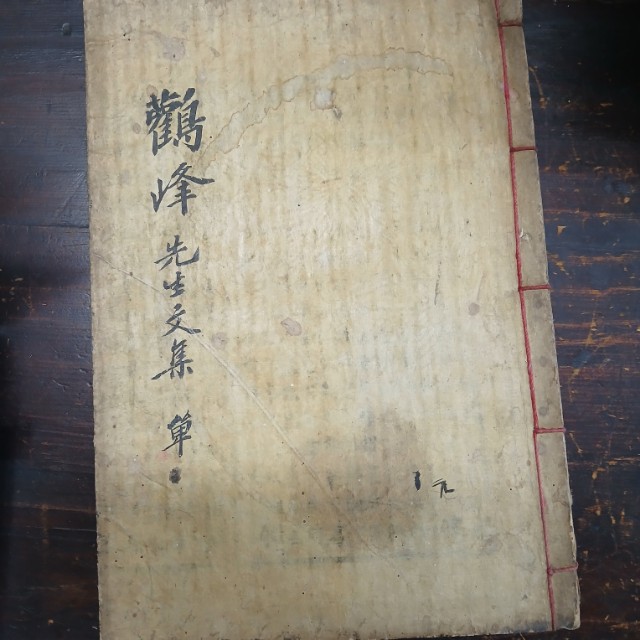 鸛峰先生文集 單